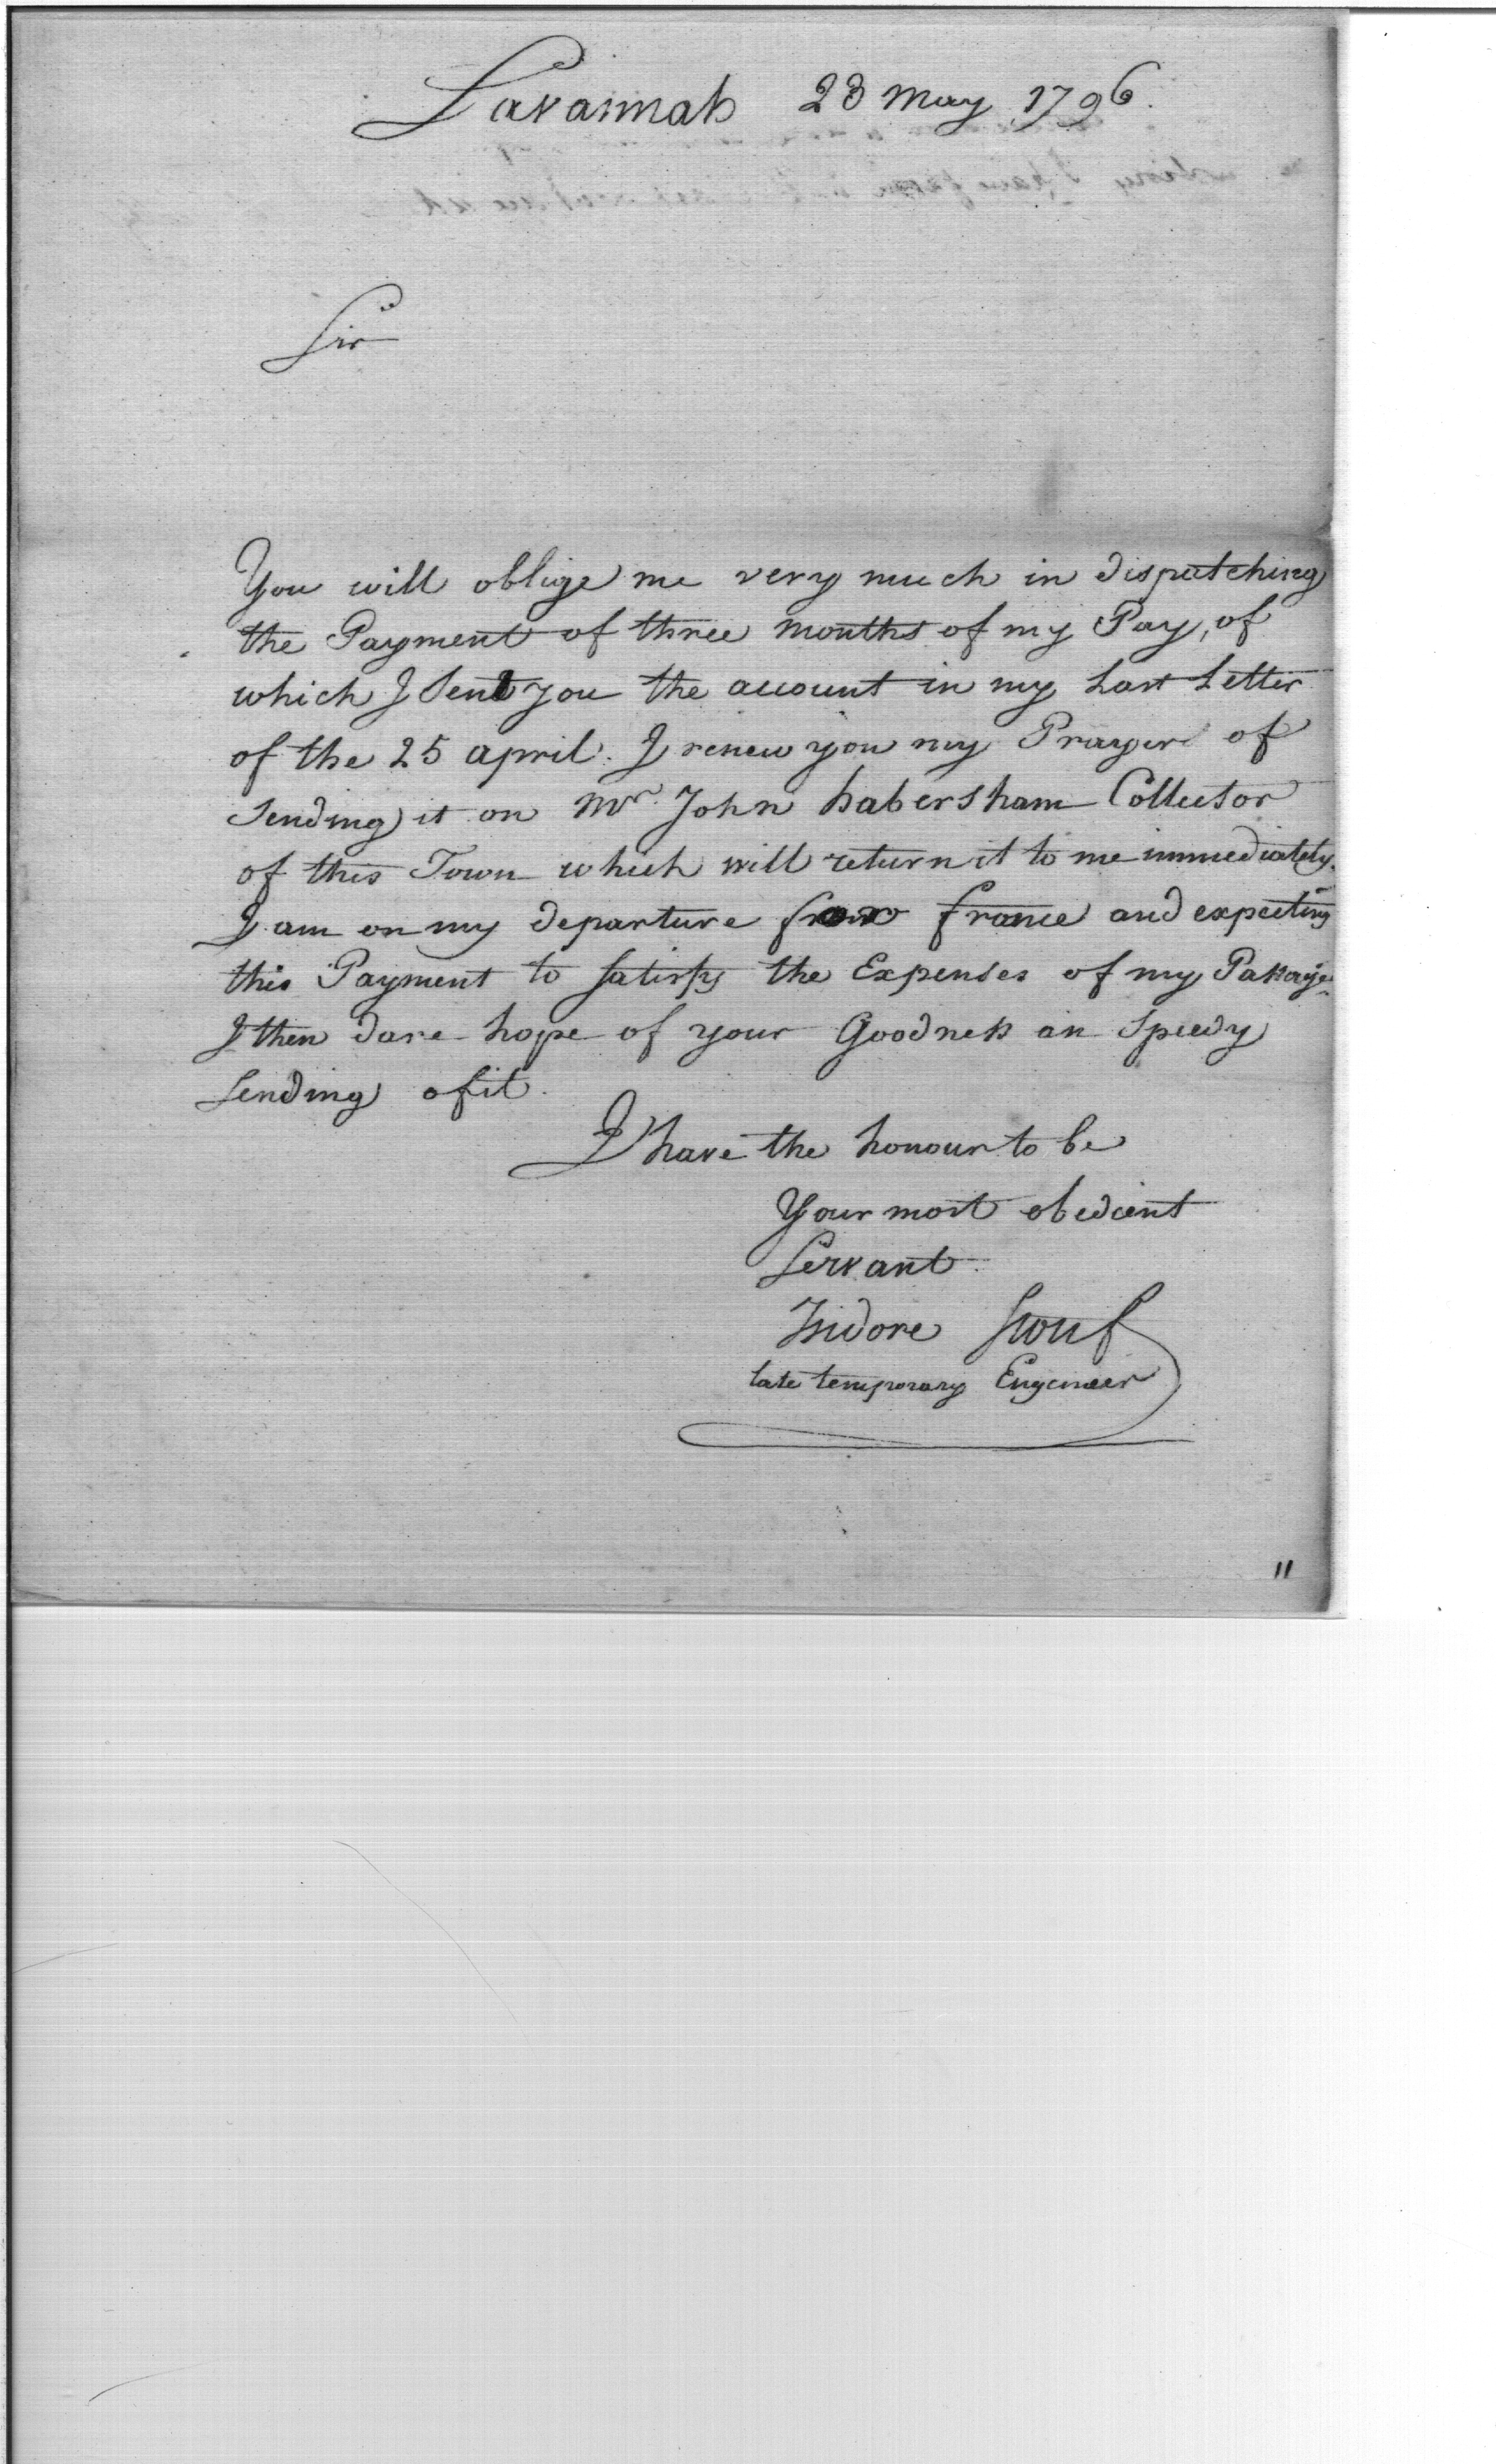 Savannah 23 may 1796.
Sir
You will oblige me very much in dispatching
the Payment of three months of my Pay, of
which I Sent you the account in my Last Letter
of the 25 april. I renew you my Prayer of
Sending it on Mr. John habersham Collector
of this Town which will return it to me immediately.
I am on my departure for france and expecting
this Payment to Satisfy the Expenses of my Passage.
I then dare hope of your Goodness an Speedy
Sending of it.
I have the honour to be
Your most obedient
Servant.
Isidore Stouf
late temporary Engeneer
11